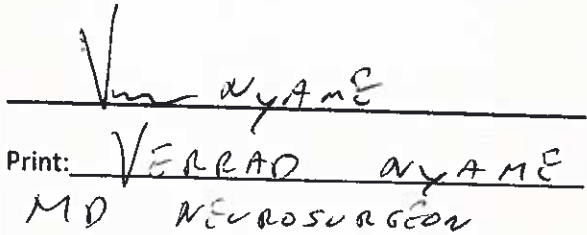 V NYAME
Print: VERRAD NYAME
MD NEUROSURGEON